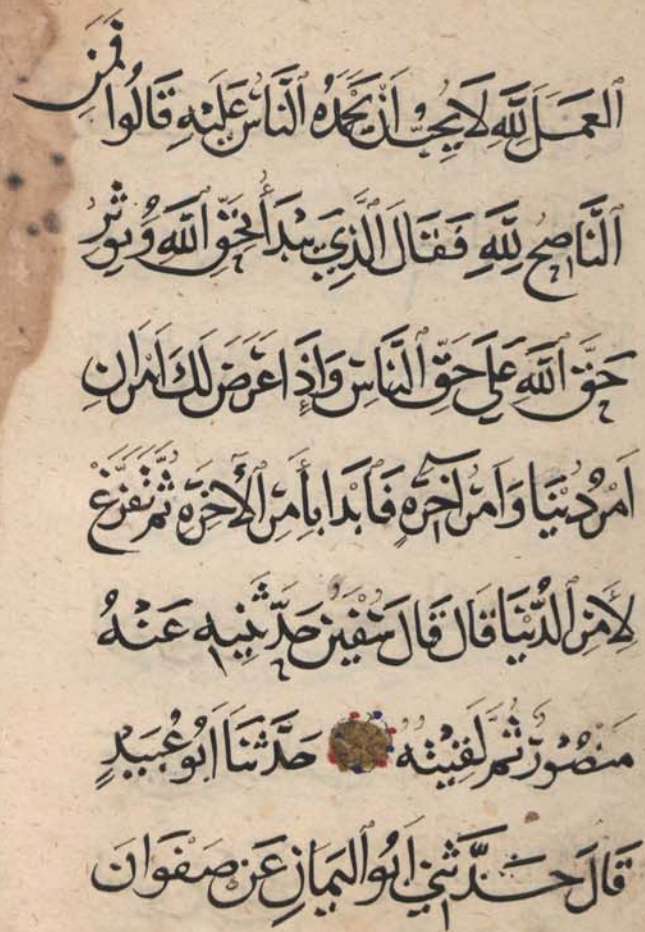 ٱلعَمَلَ لِلَّهِ لَا يُحِبُّ أَنْ يَحْمَدَهُ ٱلنَّاسُ عَلَيْهِ قَالُوا فَمَنِ
ٱلنَّاصِحُ لِلَّهِ فَقَالَ ٱلَّذِي يَبْدَأُ بِحَقِّ ٱللَّهِ وَيُوثِرُ
حَقَّ ٱللَّهِ عَلَى حَقِّ ٱلنَّاسِ وَإِذَا عَرَضَ لَكَ أَمْرَانِ
أَمْرُ دُنْيَا وَأَمْرُ آخِرَةٍ فَٱبْدَا بِأَمْرِ ٱلْآخِرَةِ ثُمَّ تَفَرَّغْ
لِأَمْرِ ٱلدُّنْيَا قَالَ قَالَ سُفْيٰنُ حَدَّثَنِيهِ عَنْهُ
مَنْصُورٌ ثُمَّ لَقِيتُهُ حَدَّثَنَا أَبُو عُبَيْدٍ
قَالَ حَدَّثَنِي أَبُو ٱليَمَانِ عَنْ صَفْوَانَ